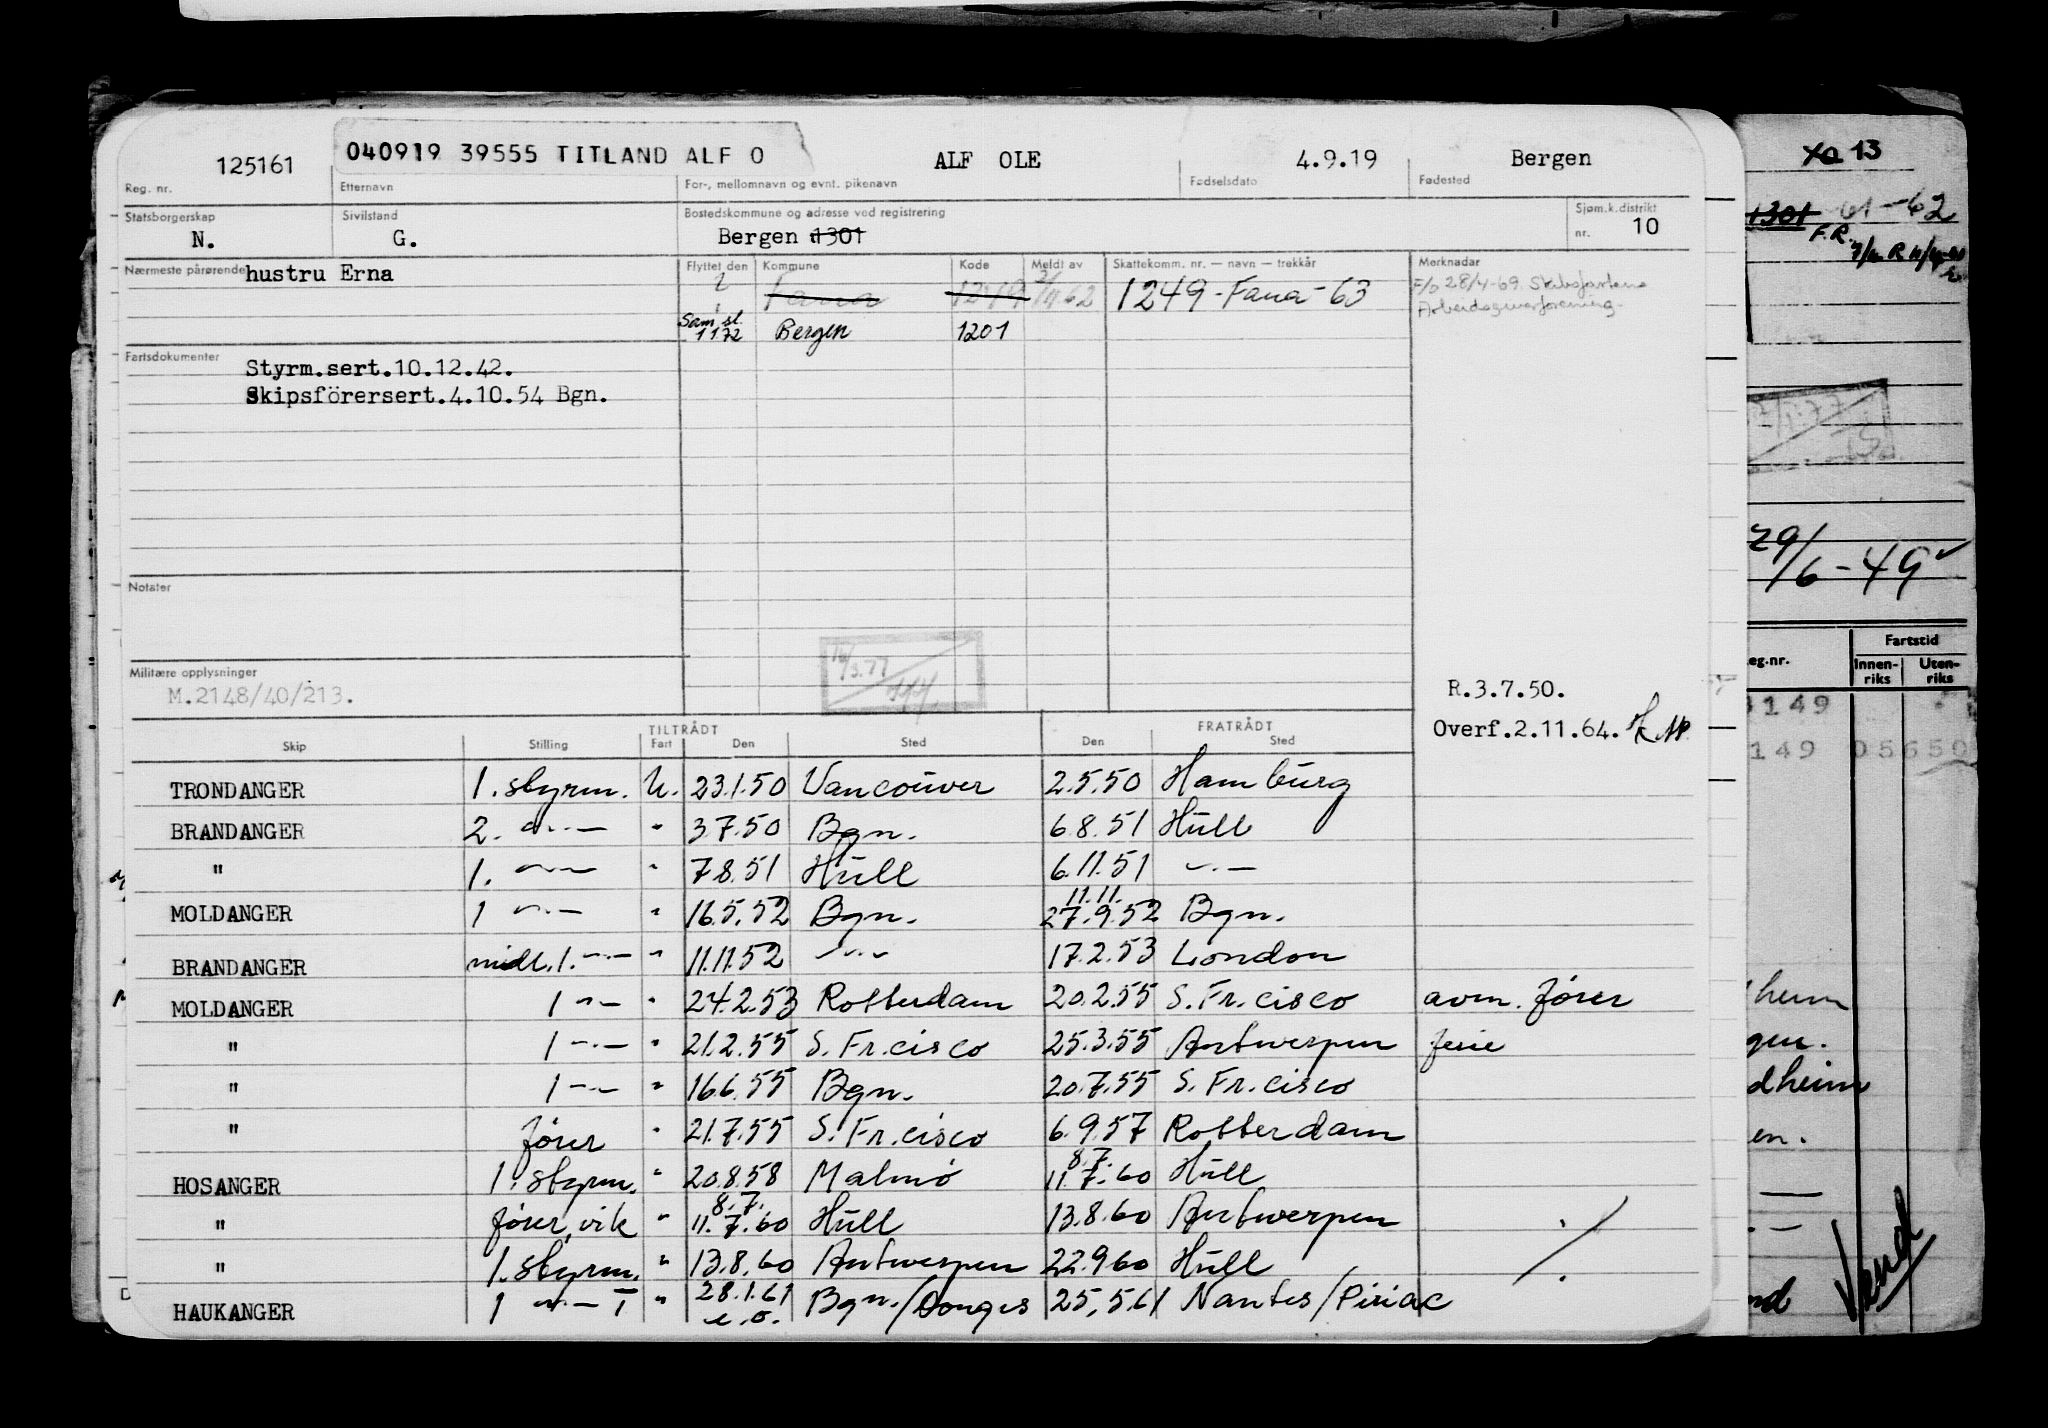 125161 040919 39555 TITLAND ALF O ALF OLE 4.9.19 Bergen
Reg. nr. Etternavn For-, mellomnavn og evnt. pikenavn Fødselsdato Fødested
Statsborgerskap Sivilstand Bostedskommune og adresse ved registrering Sjøm.k.distrikt
N. G. Bergen 1301 nr. 10
Nærmeste pårørende hustru Erna Flyttet den Kommune Kode Meldt av Skattekomm. nr. — navn — trekkår Merknadar
Fana 1249 2/11 62 1249-Fana-63 F/o 28/4-69. Skibsfartens
Arbeidsgiverforening.
Sam.sl. 1172 Bergen 1201
Fartsdokumenter
Styrm.sert.10.12.42.
Skipsförersert.4.10.54 Bgn.
Notater
Militære opplysninger
M.2148/40/213.
R.3.7.50.
Overf.2.11.64.
TILTRÅDT FRATRÅDT
Skip Stilling Fart Den Sted Den Sted
TRONDANGER 1. styrm. U. 23.1.50 Vancouver 2.5.50 Hamburg
BRANDANGER 2. —"— " 3.7.50 Bgn. 6.8.51 Hull
" 1. —"— " 7.8.51 Hull 6.11.51 —"—
MOLDANGER 1 —"— " 16.5.52 Bgn. 11.11. 27.9.52 Bgn.
BRANDANGER midl. 1. —"— " 11.11.52 —"— 17.2.53 London
MOLDANGER 1 —"— " 24.2.53 Rotterdam 20.2.55 S. Fr.cisco avm. fører
" 1 —"— " 21.2.55 S. Fr.cisco 25.3.55 Antwerpen ferie
" 1 —"— " 16.6.55 Bgn. 20.7.55 S. Fr.cisco
" fører " 21.7.55 S. Fr.cisco 6.9.57 Rotterdam
HOSANGER 1. styrm. " 20.8.58 Malmö 8.7. 11.7.60 Hull
" fører, vik " 8.7. 11.7.60 Hull 13.8.60 Antwerpen
" 1. styrm. " 13.8.60 Antwerpen 22.9.60 Hull
HAUKANGER 1 —"— T " 28.1.61 e.o. Bgn./Donges 25.5.61 Nantes/Piriac
13
1301 61-62
F.R.
29/6-49
Fartstid
eg.nr. Innen-riks Uten-riks
149
149 05650
heim
gen.
dheim
en.
nd
Vend